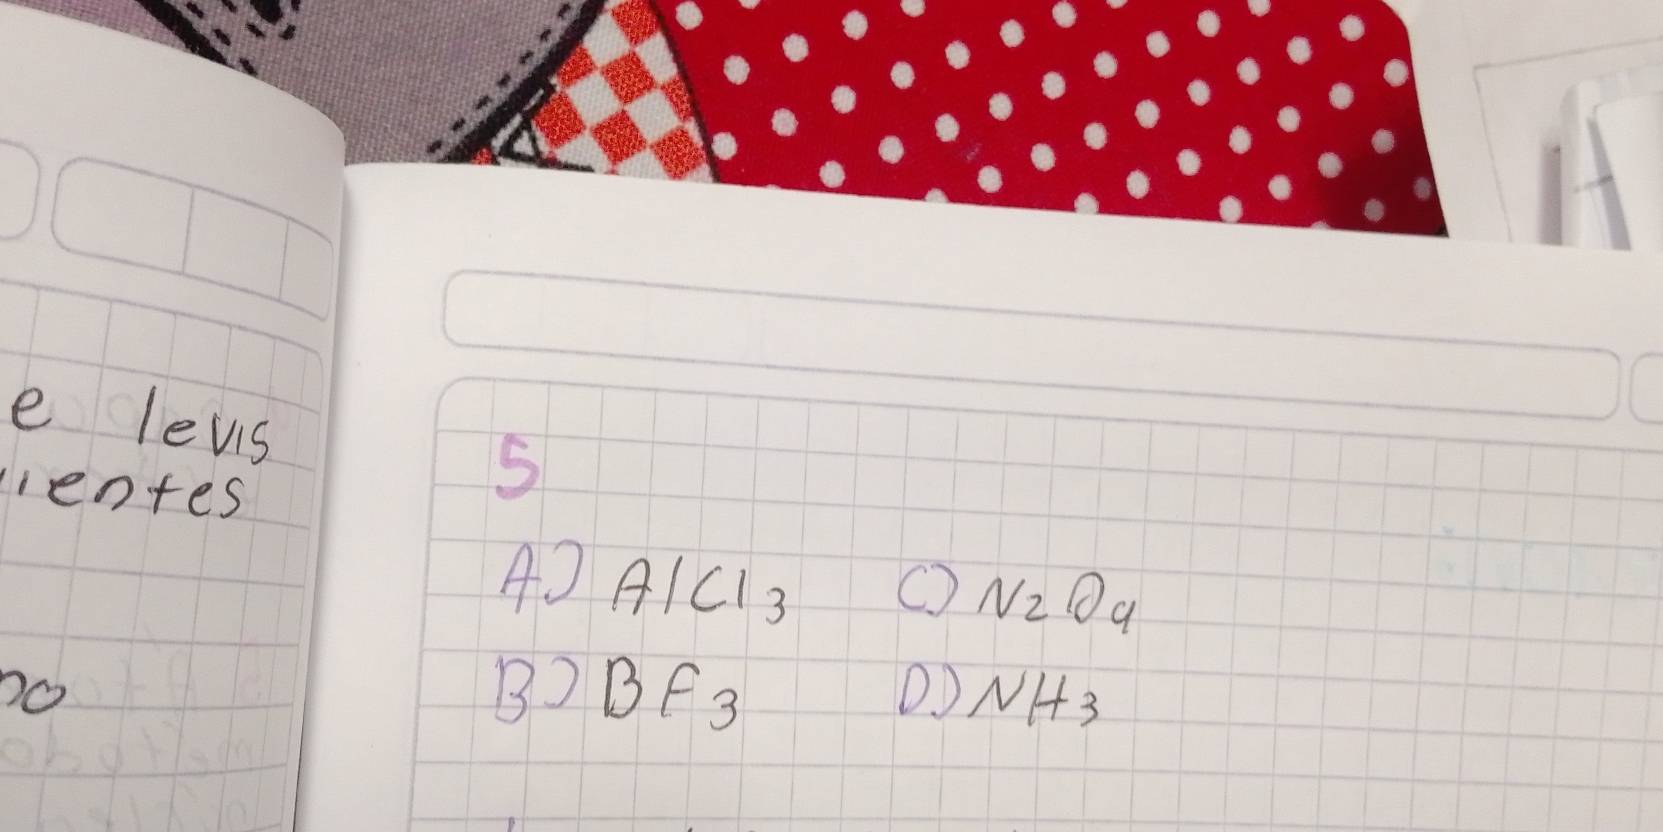 e levis
ientes
no
5
A) AlCl3 C) N2O4
B) BF3 D) NH3